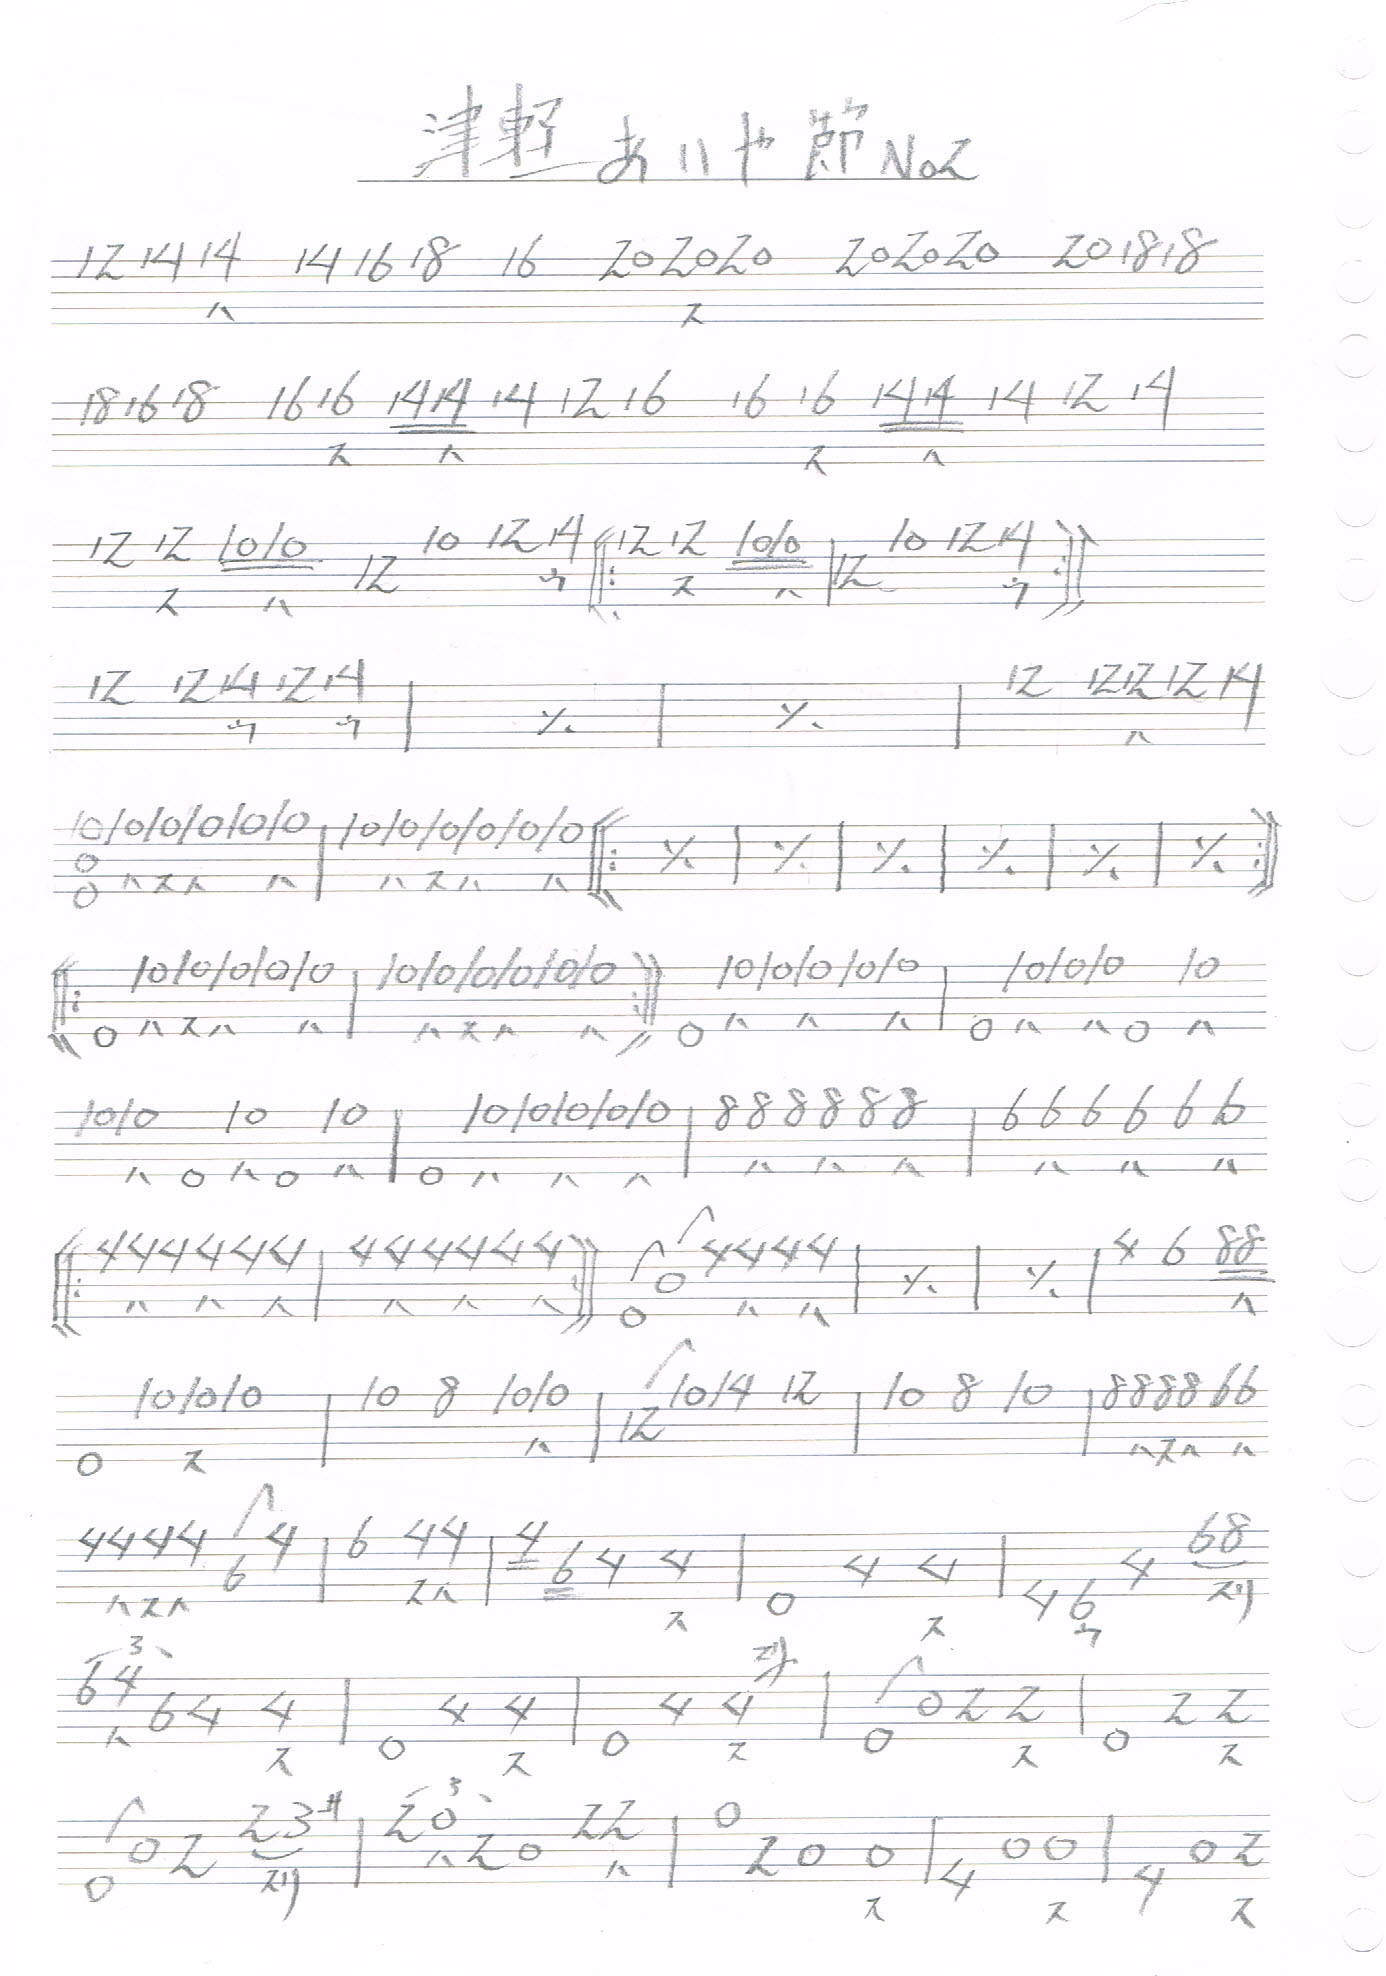 津軽あいや節 No2
12 14 14 14 16 18 16 20 20 20 20 20 20 20 18 18
ハ ス
18 16 18 16 16 14 14 14 12 16 16 16 14 14 14 12 14
ス ハ ス ハ
12 12 10 10 12 10 12 14 12 12 10 10 12 10 12 14
ス ハ ウ ス ハ ウ
12 12 14 12 14 ٪ ٪ 12 12 12 12 14
ウ ウ ハ
10 10 10 10 10 10 10 10 10 10 10 10 ٪ ٪ ٪ ٪ ٪ ٪
0
0 ハ ス ハ ハ ハ ス ハ ハ
10 10 10 10 10 10 10 10 10 10 10 10 10 10 10 10 10 10 10 10
0 ハ ス ハ ハ ハ ス ハ ハ 0 ハ ハ ハ 0 ハ ハ 0 ハ
10 10 10 10 10 10 10 10 10 8 8 8 8 8 8 6 6 6 6 6 6
ハ 0 ハ 0 ハ 0 ハ ハ ハ ハ ハ ハ ハ ハ ハ
4 4 4 4 4 4 4 4 4 4 4 4 0 0 4 4 4 4 ٪ ٪ 4 6 8 8
ハ ハ ハ ハ ハ ハ ハ ハ ハ
10 10 10 10 8 10 10 12 10 14 12 10 8 10 8 8 8 8 6 6
0 ス ハ ハ ス ハ ハ
4 4 4 4 6 4 6 4 4 4 6 4 4 0 4 4 4 6 4 6 8
ハ ス ハ ス ハ ス ス ウ スリ
3
6 4 6 4 4 0 4 4 0 4 4 スリ 0 0 2 2 0 2 2
ハ ス ス ス ス ス
3
0 0 2 2 3# 2 0 2 0 2 2 0 2 0 0 4 0 0 4 0 2
スリ ハ ハ ス ス ス